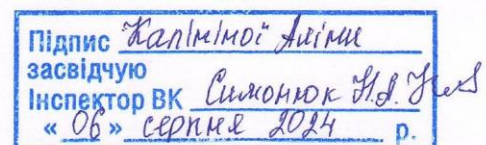 Підпис Калініної Аліни
засвідчую
Інспектор ВК Симонюк Н.А.
« 06 » серпня 2024 р.